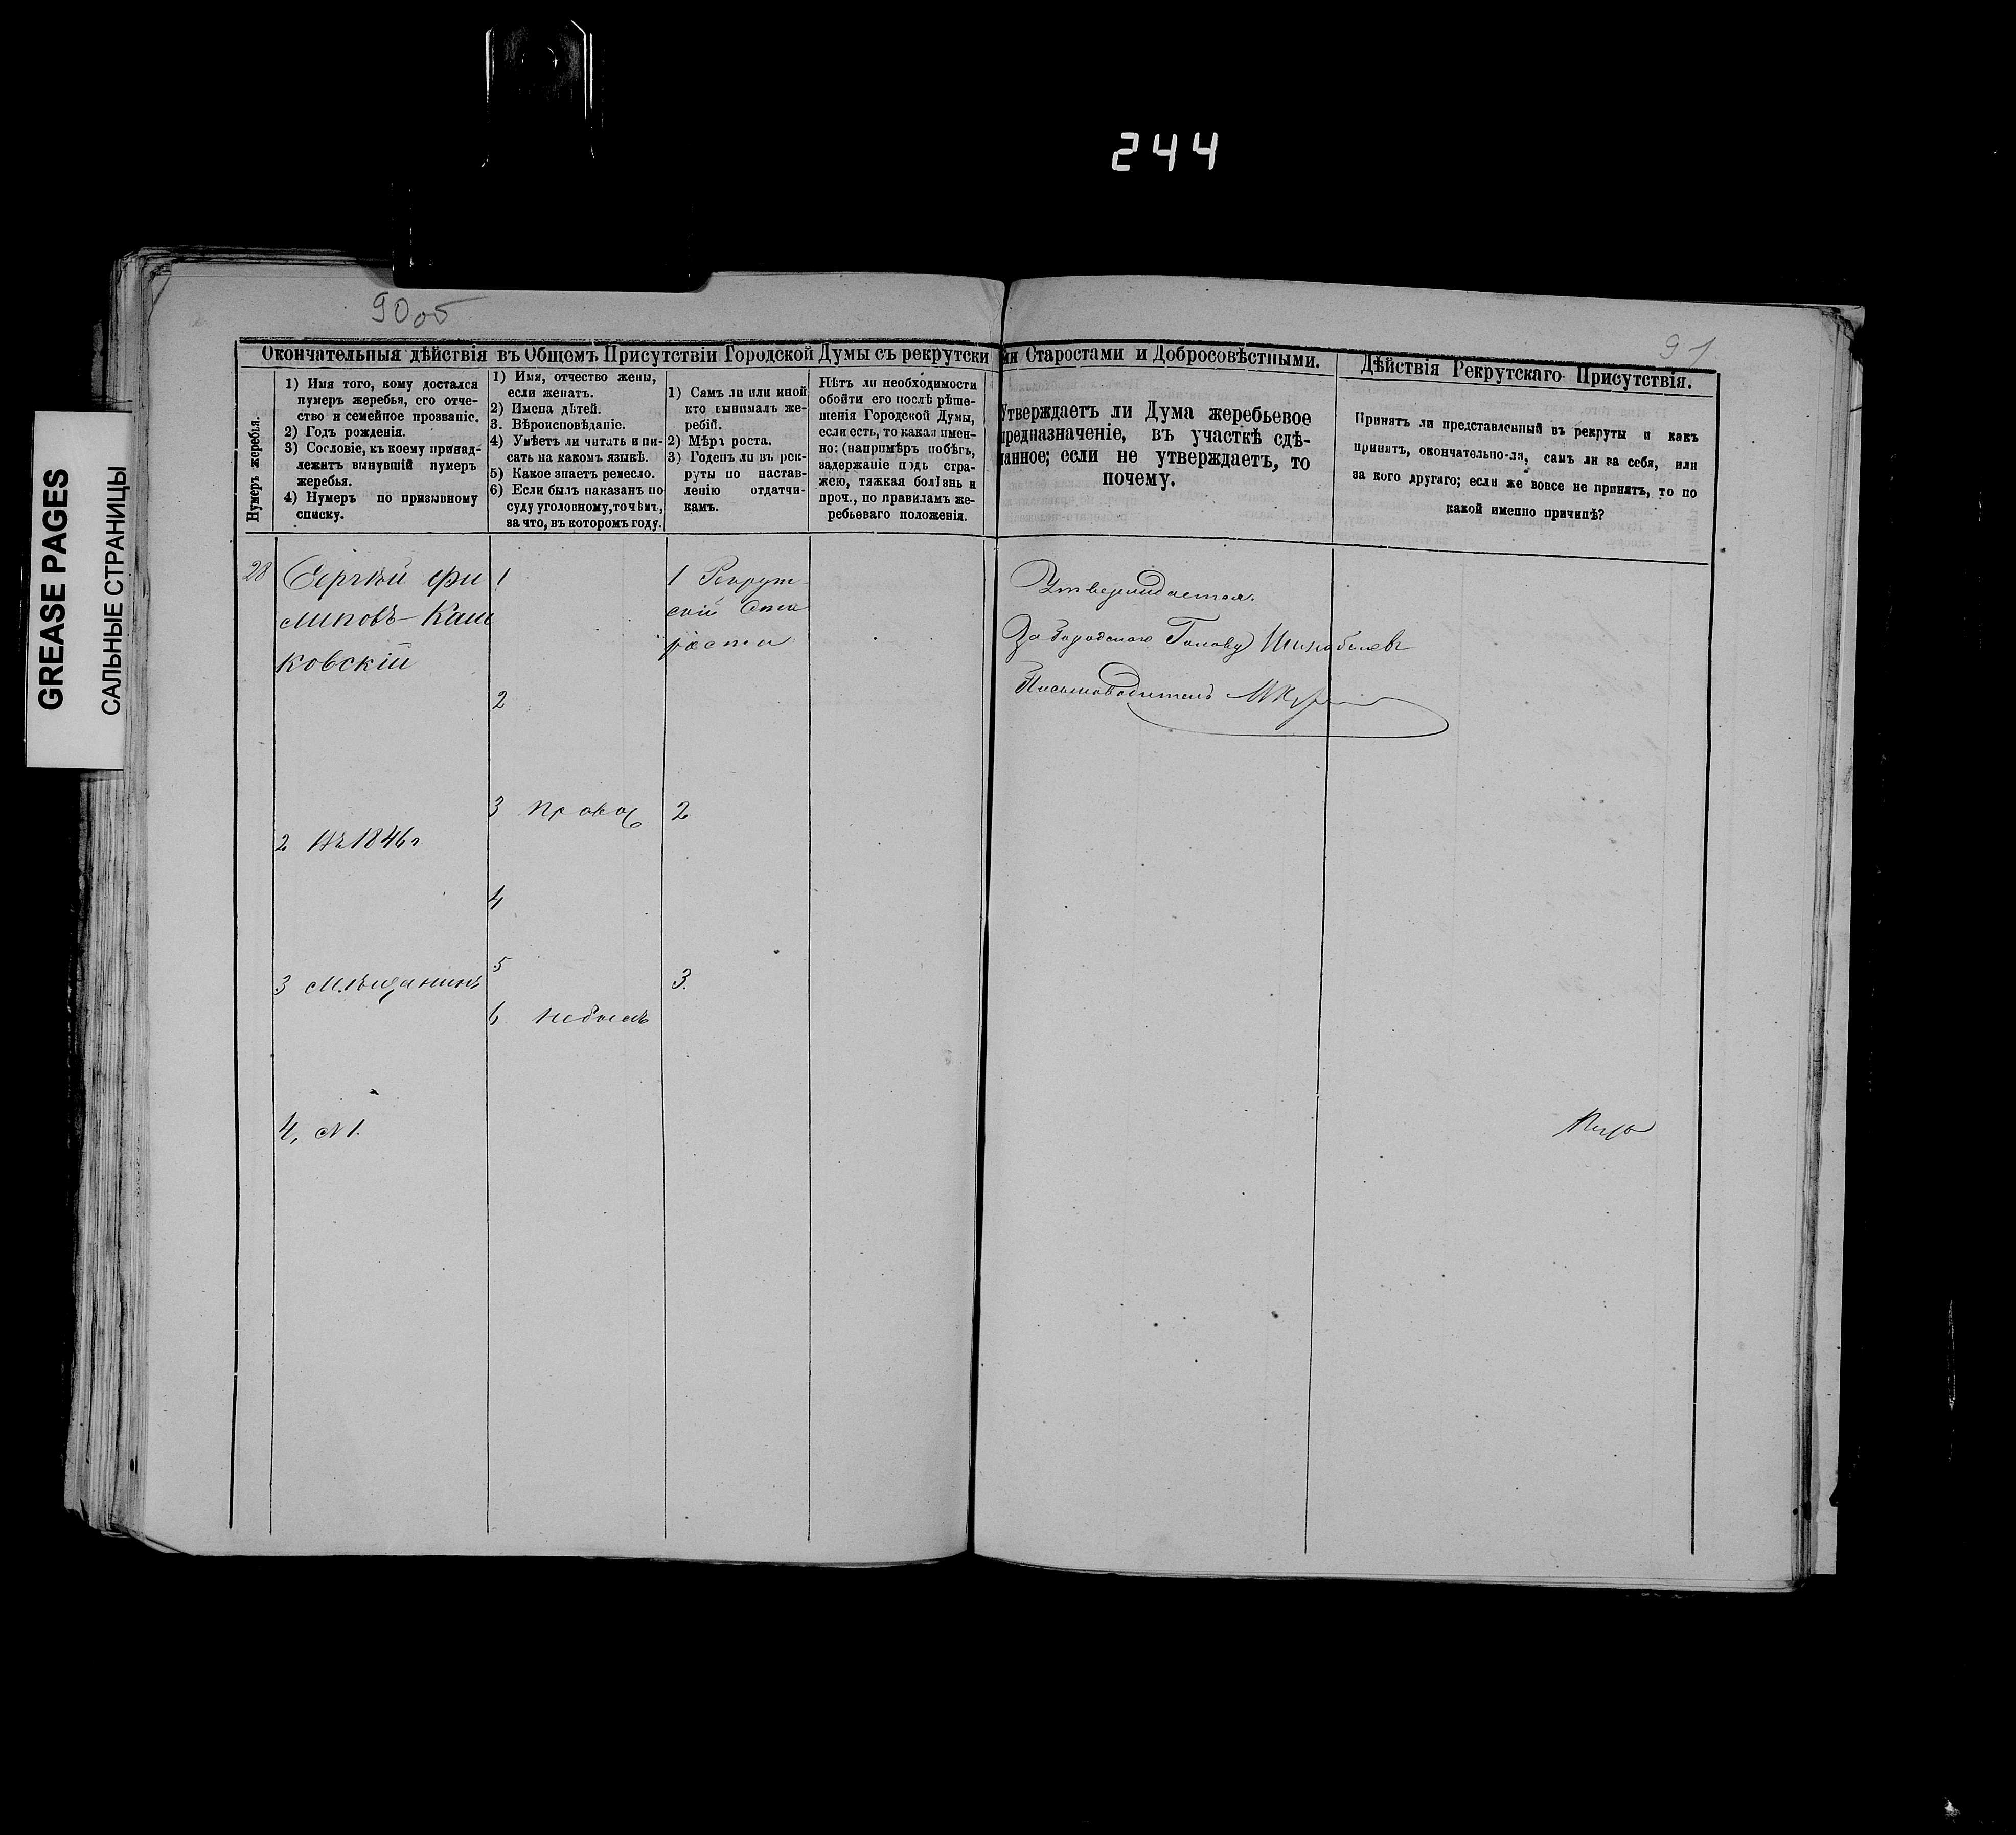 244
GREASE PAGES
САЛЬНЫЕ СТРАНИЦЫ
90об
91
Окончательныя дѣйствія въ Общемъ Присутствіи Городской Думы съ рекрутскими Старостами и Добросовѣстными.
Дѣйствія Рекрутскаго Присутствія.
Нумеръ жеребья.
1) Имя того, кому достался
нумеръ жеребья, его отче-
ство и семейное прозваніе.
2) Годъ рожденія.
3) Сословіе, къ коему принад-
лежитъ вынувшій нумеръ
жеребья.
4) Нумеръ по призывному
списку.
1) Имя, отчество жены,
если женатъ.
2) Имена дѣтей.
3. Вѣроисповѣданіе.
4) Умѣетъ ли читать и пи-
сать на какомъ языкѣ.
5) Какое знаетъ ремесло.
6) Если былъ наказанъ по
суду уголовному, то чѣмъ,
за что, въ которомъ году.
1) Самъ ли или иной
кто вынималъ же-
ребій.
2) Мѣра роста.
3) Годенъ ли въ рек-
руты по настав-
ленію отдатчи-
камъ.
Нѣтъ ли необходимости
обойти его послѣ рѣше-
шенія Городской Думы,
если есть, то какая имен-
но: (напримѣръ побѣгъ,
задержаніе подъ стра-
жею, тяжкая болѣзнь и
проч., по правиламъ же-
ребьеваго положенія.
Утверждаетъ ли Дума жеребьевое
предназначеніе, въ участкѣ сдѣ-
ланное; если не утверждаетъ, то
почему.
Принятъ ли представленный въ рекруты и какъ
принятъ, окончательно-ли, самъ ли за себя, или
за кого другаго; если же вовсе не принятъ, то по
какой именно причинѣ?
28
Сергѣй Фи
липовъ-Каш
ковскій
2 Въ 1846 г
3 Мѣщанинъ
4, N 1.
1
2
3 Правос
4
5
6 Небылъ
1 Рекрут-
ской Ста
роста
2
3.
Утверждается.
За Городскаго Голову
Письмоводитель